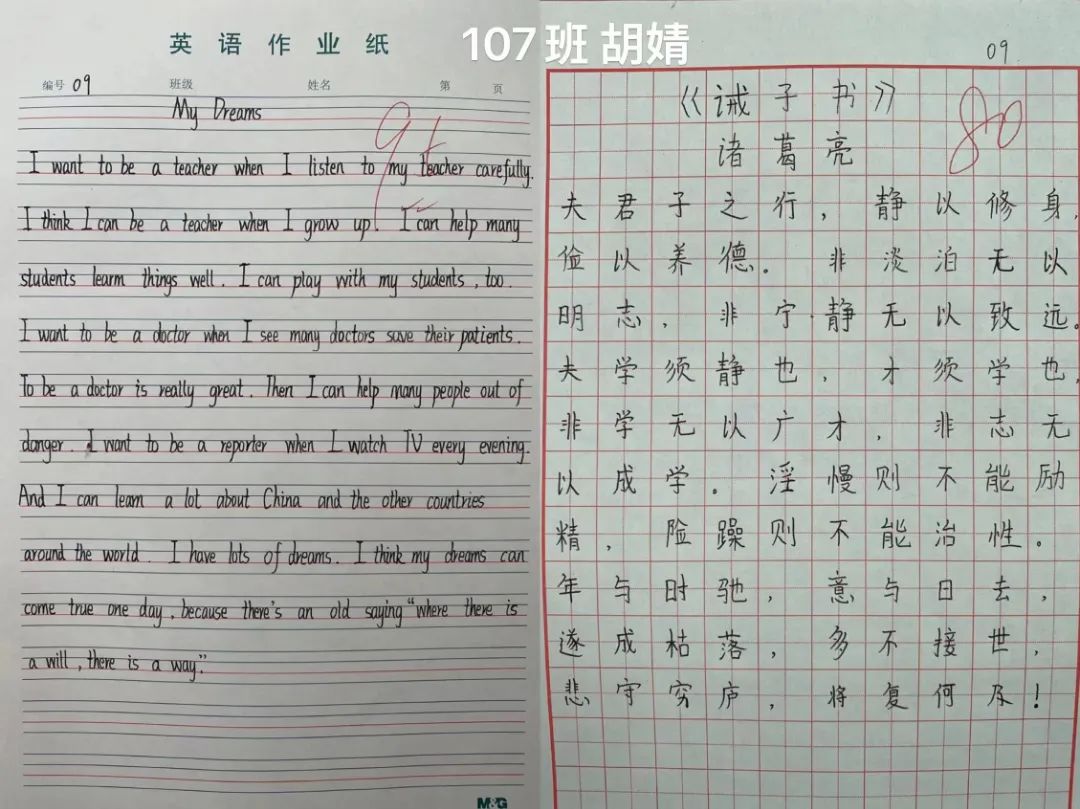 107班 胡婧
英语作业纸
编号 09 班级 姓名 第 页
My Dreams
95
I want to be a teacher when I listen to my teacher carefully.
I think I can be a teacher when I grow up! I can help many
students learm things well. I can play with my students, too.
I want to be a doctor when I see many doctors save their patients.
To be a doctor is really great. Then I can help many people out of
danger. I want to be a reporter when I watch TV every evening.
And I can learn a lot about China and the other countries
around the world. I have lots of dreams. I think my dreams can
come true one day, because there's an old saying "where there is
a will, there is a way."
M&G
09
《诫子书》
80
诸葛亮
夫君子之行,静以修身,
俭以养德。非淡泊无以
明志,非宁静无以致远。
夫学须静也,才须学也,
非学无以广才,非志无
以成学。淫慢则不能励
精,险躁则不能治性。
年与时驰,意与日去,
遂成枯落,多不接世,
悲守穷庐,将复何及!